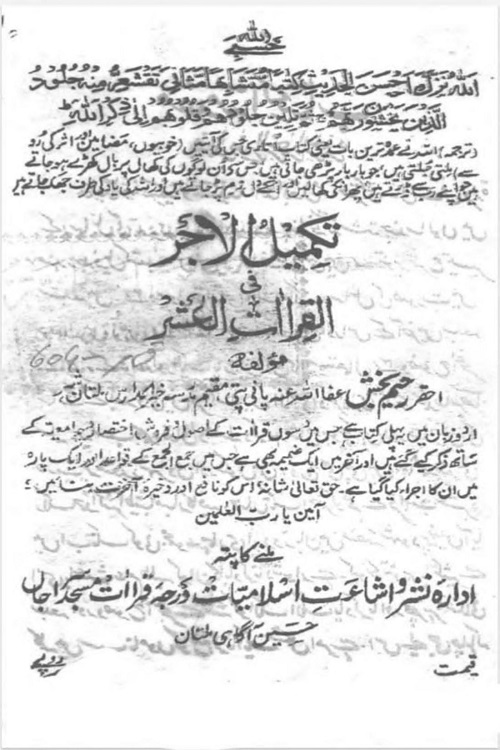 اللہ
اَللّٰهُ نَزَّلَ اَحْسَنَ الْحَدِيْثِ كِتٰبًا مُّتَشَابِهًا مَّثَانِيَ تَقْشَعِرُّ مِنْهُ جُلُوْدُ
الَّذِيْنَ يَخْشَوْنَ رَبَّهُمْ ثُمَّ تَلِيْنُ جُلُوْدُهُمْ وَقُلُوْبُهُمْ اِلٰى ذِكْرِ اللّٰهِ ط
(ترجمہ) اللہ نے عمدہ ترین بات یعنی کتاب اتاری جس کی آیتیں (خوبیوں، مضامین اور اثر کی رو
سے) ملتی جلتی ہیں، جو بار بار پڑھی جاتی ہیں، جس سے ان لوگوں کی کھال پر بال کھڑے ہو جاتے
ہیں جو اپنے رب سے ڈرتے ہیں پھر انکی کھالیں اور انکے دل نرم پڑ جاتے ہیں اور اللہ کی یاد کی طرف جھک جاتے ہیں
تکمیل الاجر
فی
القراات العشر
مؤلفہ
احقر رحیم بخش عفا اللہ عنہ پانی پتی مقیم مدرسہ خیر المدارس ملتان
اردو زبان میں پہلی کتاب ہے جس میں دسوں قراات کے اصول و فروش اختصار اور جامعیت کے
ساتھ ذکر کیے گئے ہیں اور آخر میں ایک ضمیمہ بھی ہے جس میں جمع الجمع کے قواعد اور ایک پارہ
میں ان کا اجراء کیا گیا ہے۔ حق تعالٰی شانہٗ اس کو نافع اور ذخیرۂ آخرت بنائیں؛
آمین یا رب العٰلمین
ملنے کا پتہ
ادارہ نشر و اشاعت اسلامیات درجہ قراات مسجد سراجاں
حسین آگاہی ملتان
قیمت روپے